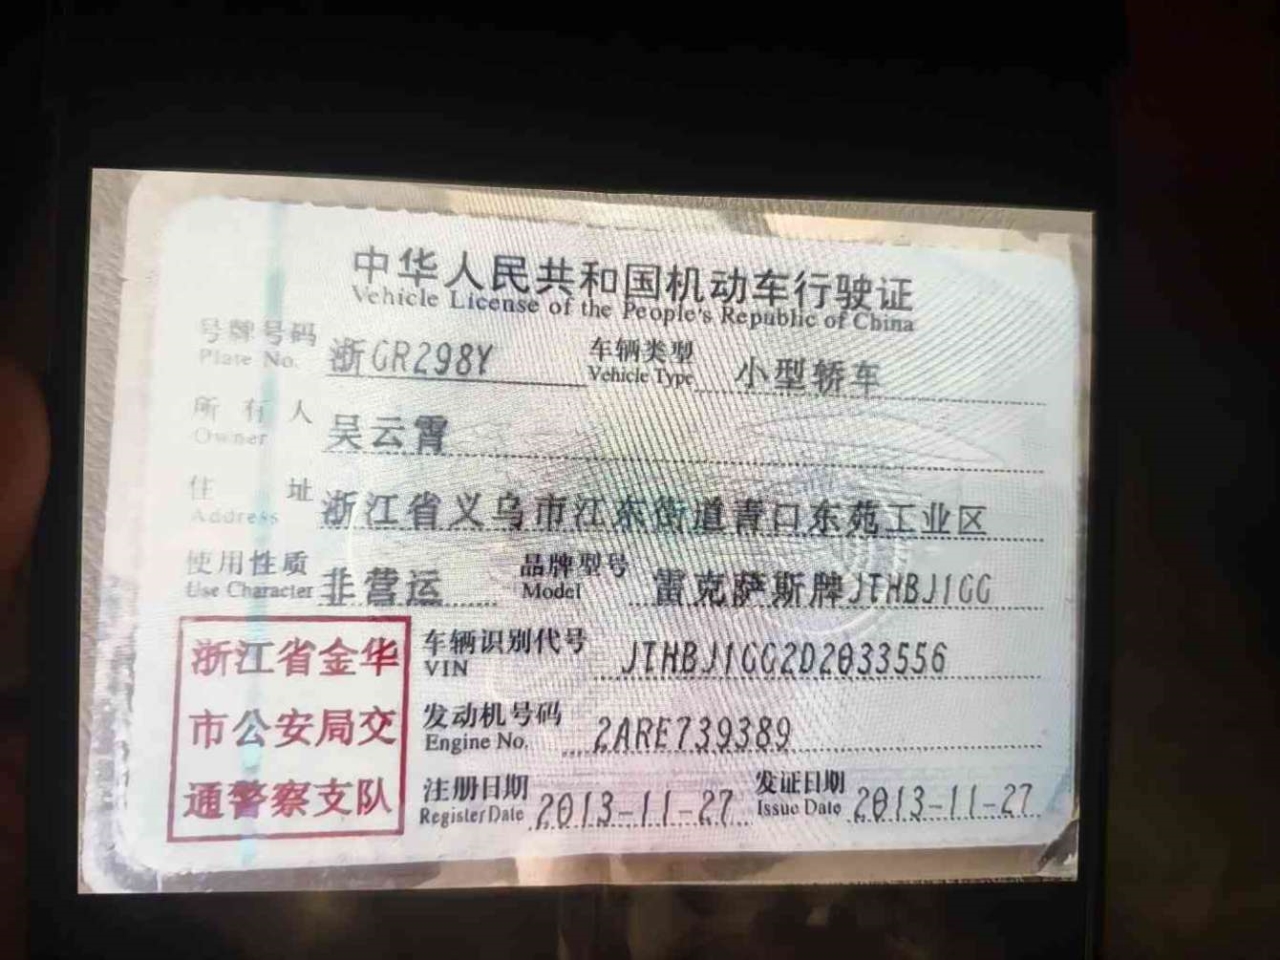 中华人民共和国机动车行驶证
Vehicle License of the People's Republic of China
号牌号码 浙GR298Y 车辆类型 小型轿车
Plate No. Vehicle Type
所有人 吴云霄
Owner
住址 浙江省义乌市江东街道青口东苑工业区
Address
使用性质 非营运 品牌型号 雷克萨斯牌JTHBJ1GG
Use Character Model
浙江省金华
市公安局交
通警察支队
车辆识别代号 JTHBJ1GG2D2033556
VIN
发动机号码 2ARE739389
Engine No.
注册日期 2013-11-27 发证日期 2013-11-27
Register Date Issue Date